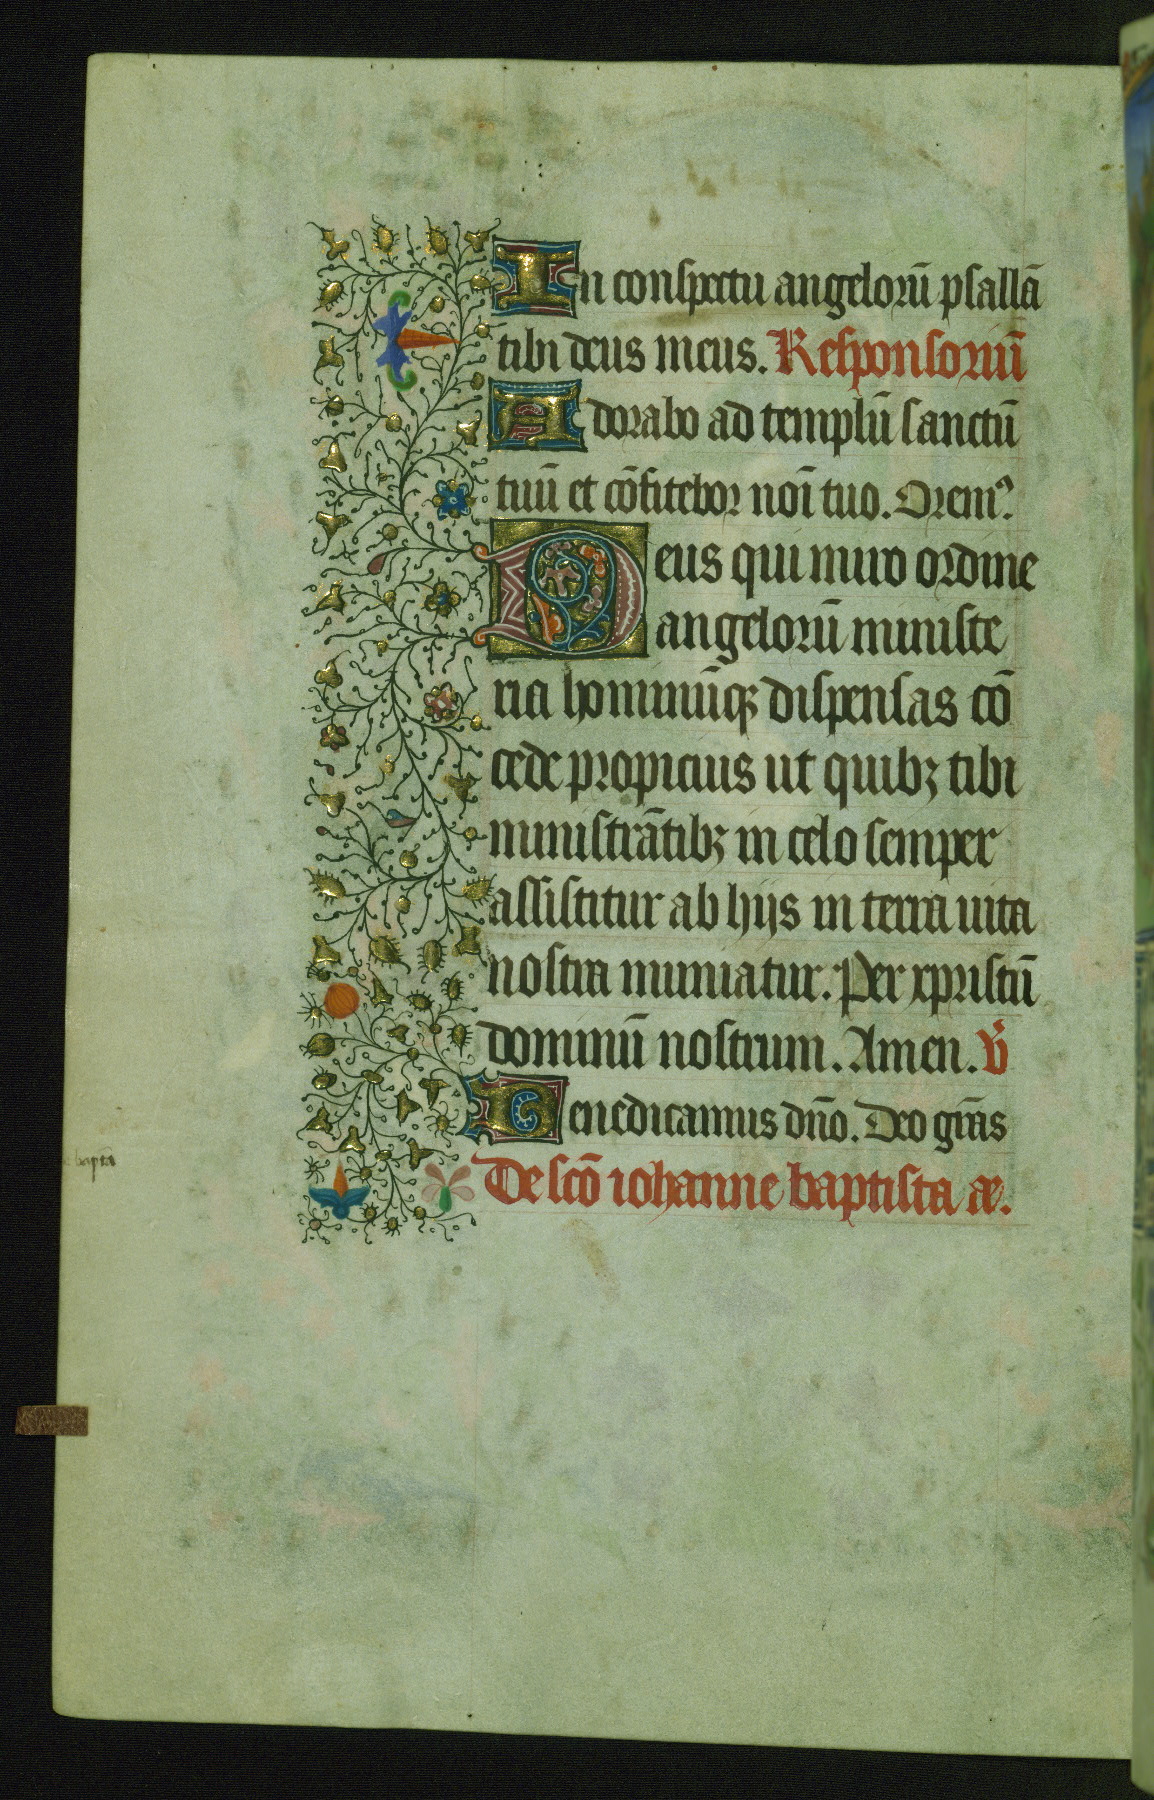 In conspectu angelorū psallā
tibi deus meus. Responsoriū
Adorabo ad templū sanctū
tuū et cōfitebor noī tuo. Oremꝰ.
Deus qui miro ordine
angelorū ministe
ria hominūqꝫ dispensas cō
cede propicius ut quibꝫ tibi
ministrātibꝫ in celo semper
assistitur ab hijs in terra uita
nostra muniatur. Per xpristū
dominū nostrum. Amen. v̄
Benedicamus dn̄o. Deo gr̄as
De scō iohanne baptista ae.
bapta